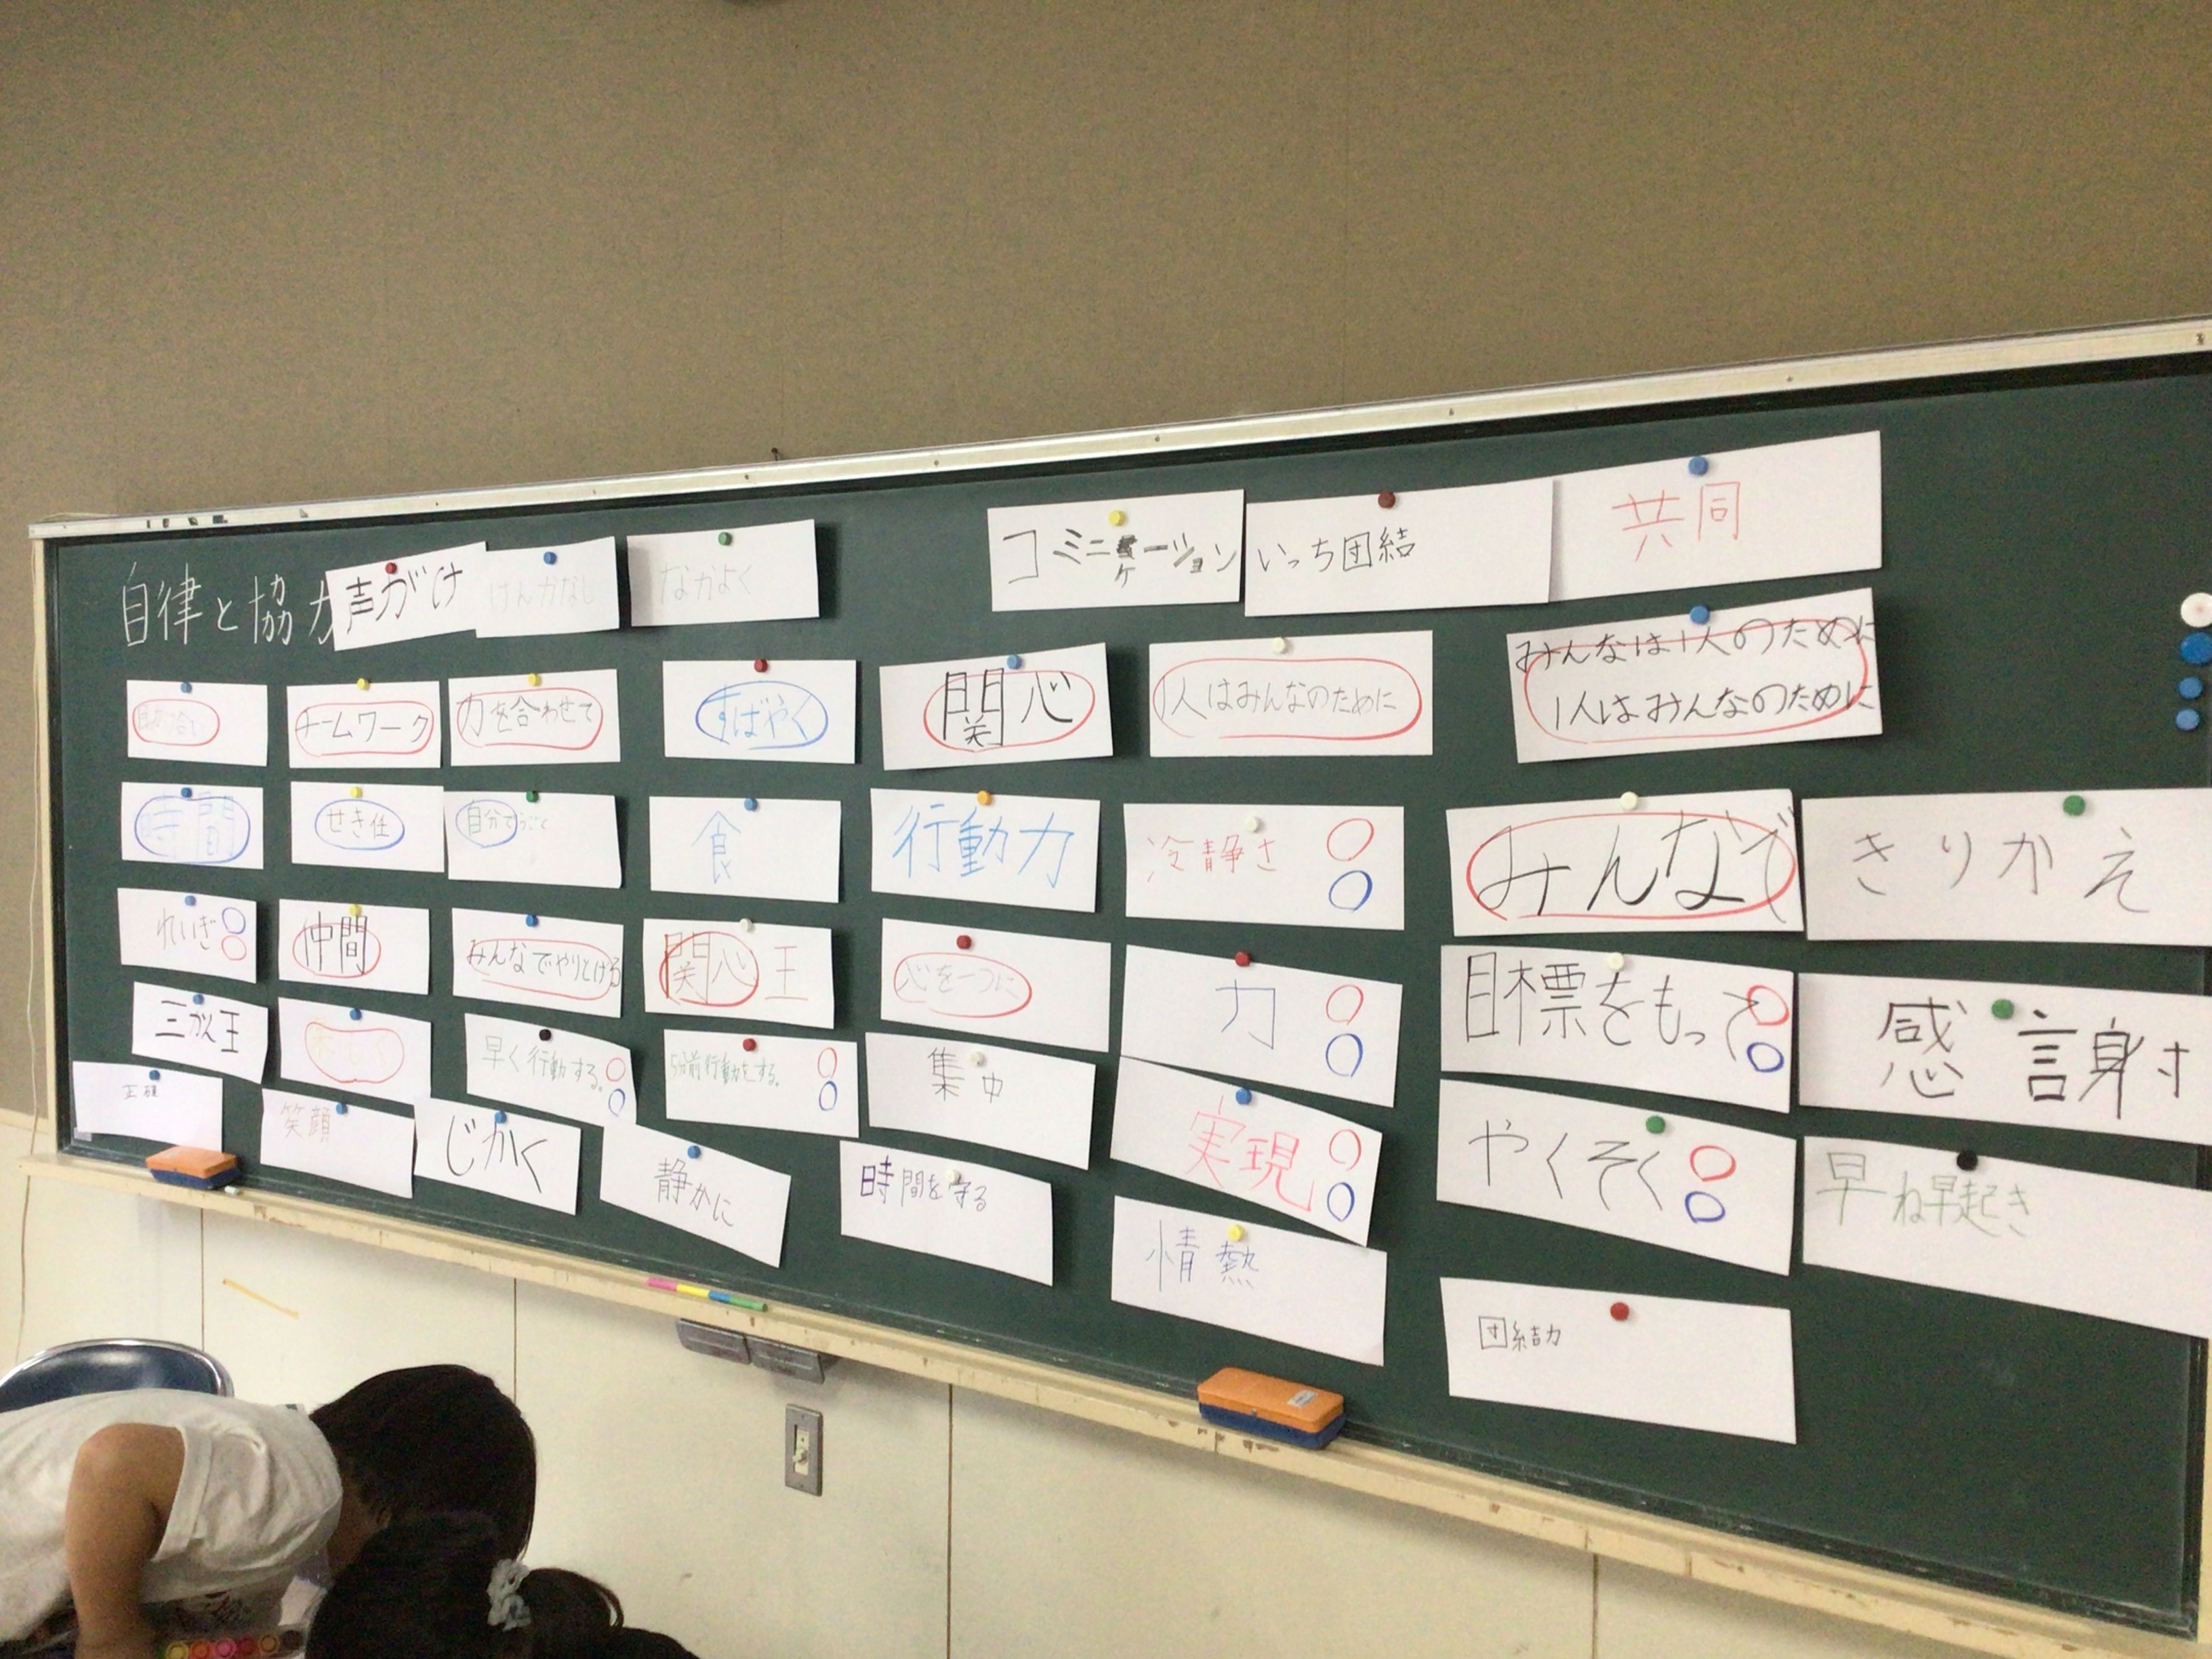 自律と協力
声がけ
けんかなし
なかよく
コミニケーション
いっち団結
共同
助け合い
チームワーク
力を合わせて
すばやく
関心
1人はみんなのために
みんなは1人のために
1人はみんなのために
時間
せき任
自分でうごく
食
行動力
冷静さ
みんなで
きりかえ
れいぎ
仲間
みんなでやりとげる
関心王
心を一つに
力
目標をもって
感謝
三がん王
楽しく
早く行動する。
5分前行動をする。
集中
実現
やくそく
早ね早起き
笑顔
じかく
静かに
時間を守る
情熱
団結力